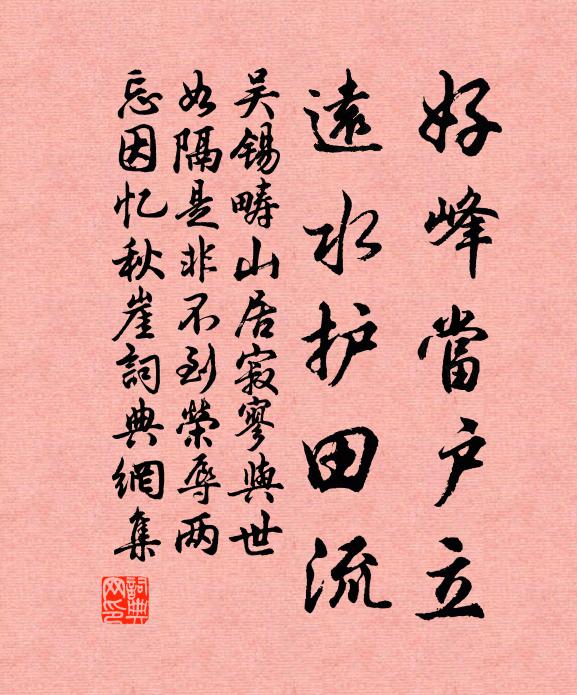 好峰當户立
遠水护田流
吴锡畴山居寂寥與世
如隔是非不到榮辱两
忘因忆秋崖詞典網集
詞典
网